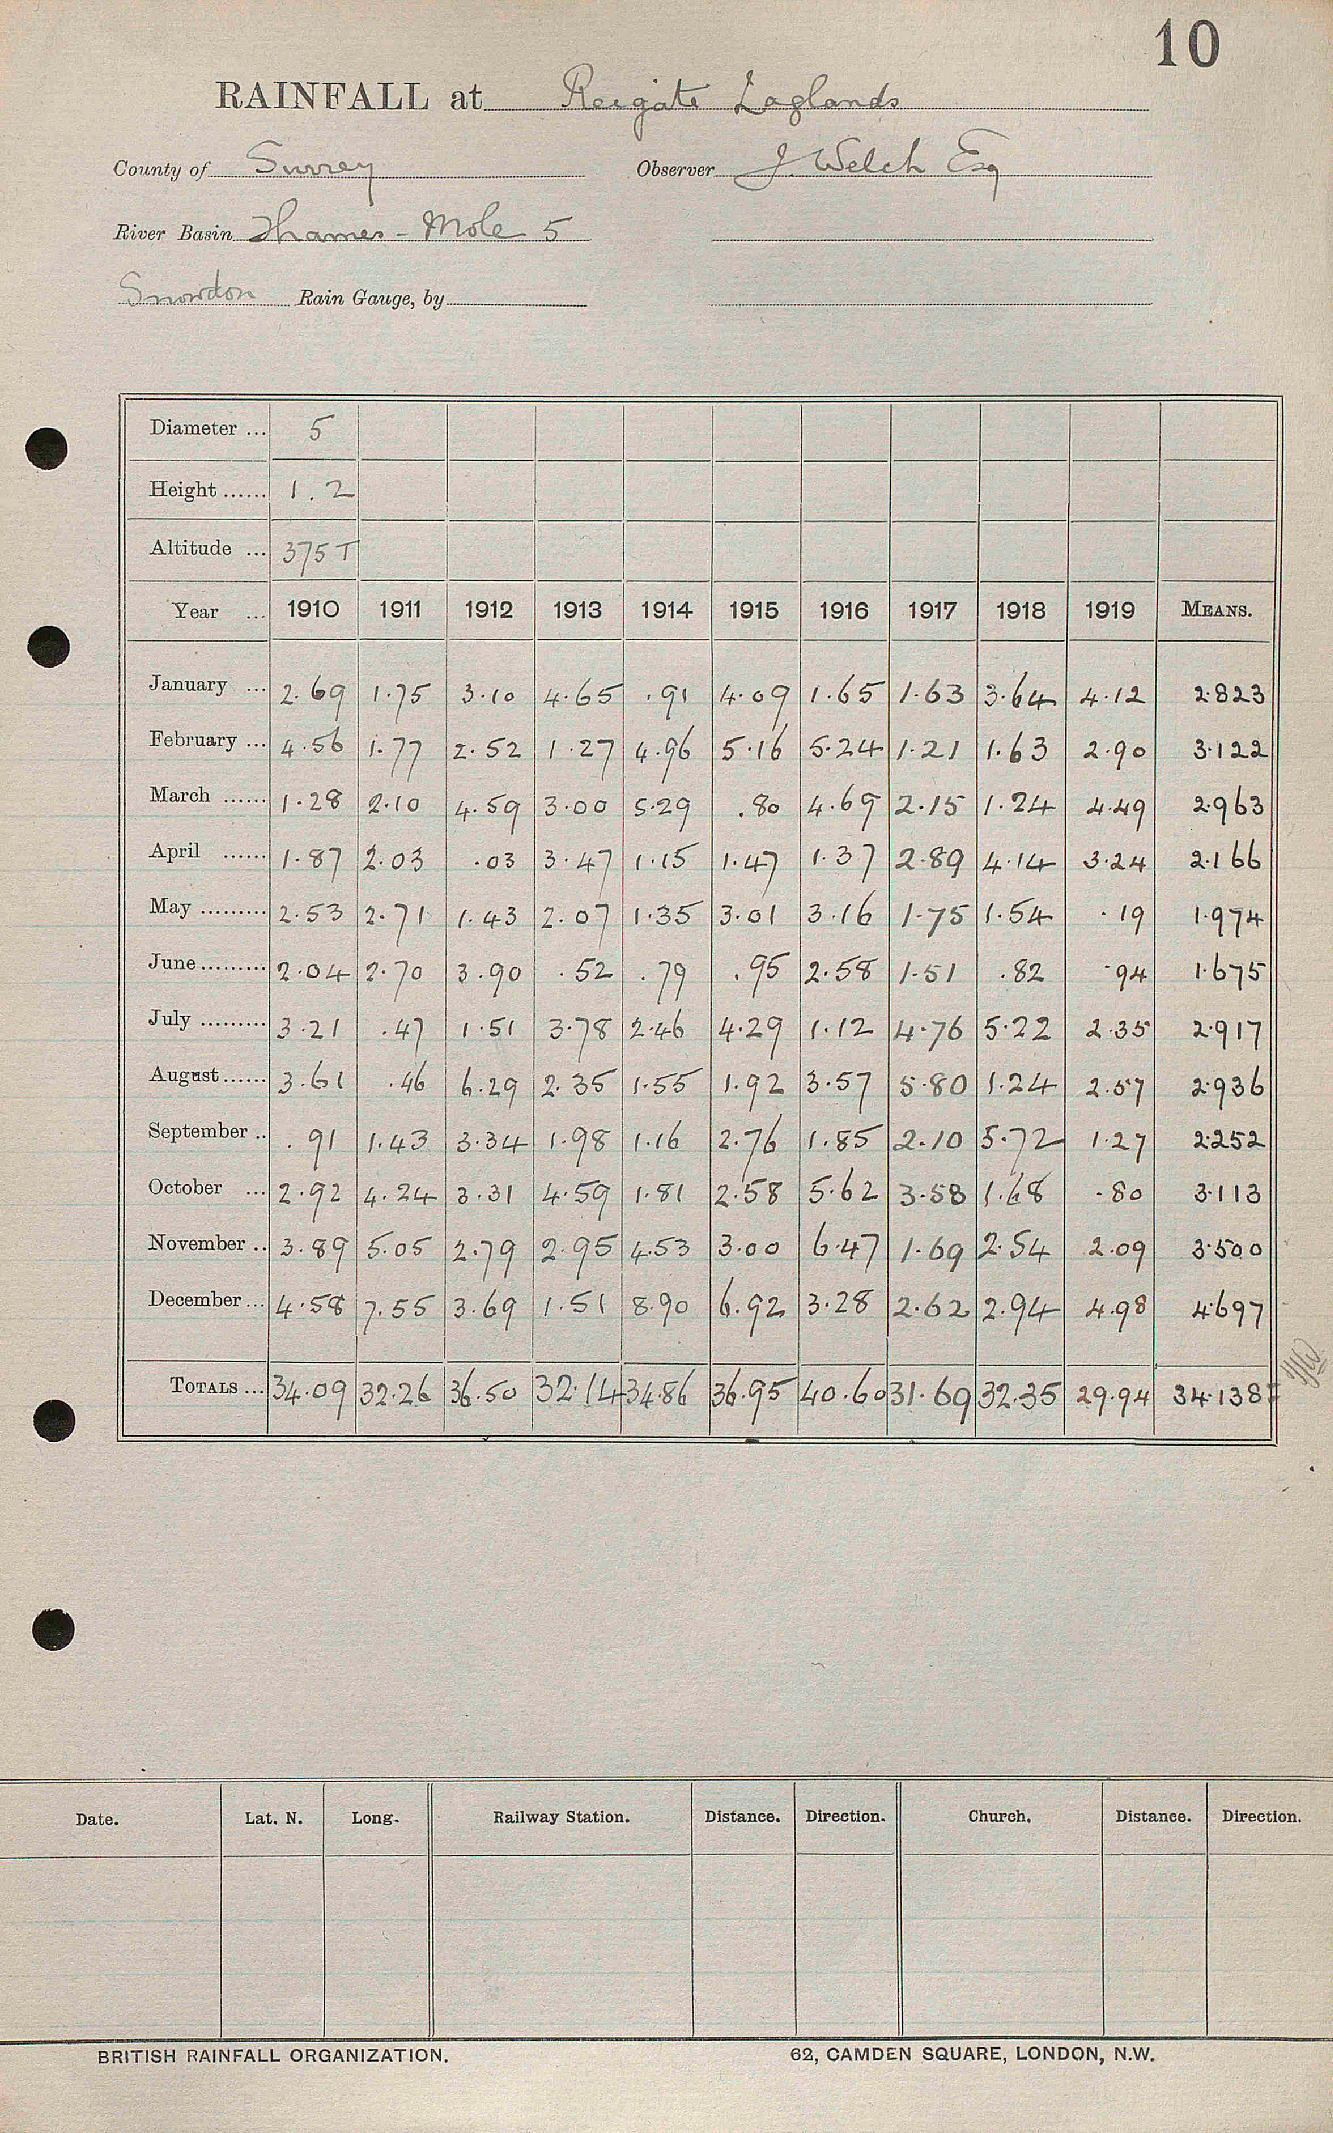 10
RAINFALL at Reigate Laglands
County of Surrey Observer J. Welch Esq
River Basin Thames - Mole 5
Snowdon Rain Gauge, by
Diameter ... 5
Height ...... 1.2
Altitude ... 375 T
Year ... 1910 1911 1912 1913 1914 1915 1916 1917 1918 1919 MEANS.
January ... 2.69 1.75 3.10 4.65 .91 4.09 1.65 1.63 3.64 4.12 2.823
February ... 4.56 1.77 2.52 1.27 4.96 5.16 5.24 1.21 1.63 2.90 3.122
March ...... 1.28 2.10 4.59 3.00 5.29 .80 4.69 2.15 1.24 4.49 2.963
April ...... 1.87 2.03 .03 3.47 1.15 1.47 1.37 2.89 4.14 3.24 2.166
May ......... 2.53 2.71 1.43 2.07 1.35 3.01 3.16 1.75 1.54 .19 1.974
June ......... 2.04 2.70 3.90 .52 .79 .95 2.58 1.51 .82 .94 1.675
July ......... 3.21 .47 1.51 3.78 2.46 4.29 1.12 4.76 5.22 2.35 2.917
August ...... 3.61 .46 6.29 2.35 1.55 1.92 3.57 5.80 1.24 2.57 2.936
September .. .91 1.43 3.34 1.98 1.16 2.76 1.85 2.10 5.72 1.27 2.252
October ... 2.92 4.24 3.31 4.59 1.81 2.58 5.62 3.58 1.68 .80 3.113
November .. 3.89 5.05 2.79 2.95 4.53 3.00 6.47 1.69 2.54 2.09 3.500
December ... 4.58 7.55 3.69 1.51 8.90 6.92 3.28 2.62 2.94 4.98 4.697
TOTALS ... 34.09 32.26 36.50 32.14 34.86 36.95 40.60 31.69 32.35 29.94 34.138
Date. Lat. N. Long. Railway Station. Distance. Direction. Church. Distance. Direction.
BRITISH RAINFALL ORGANIZATION. 62, CAMDEN SQUARE, LONDON, N.W.